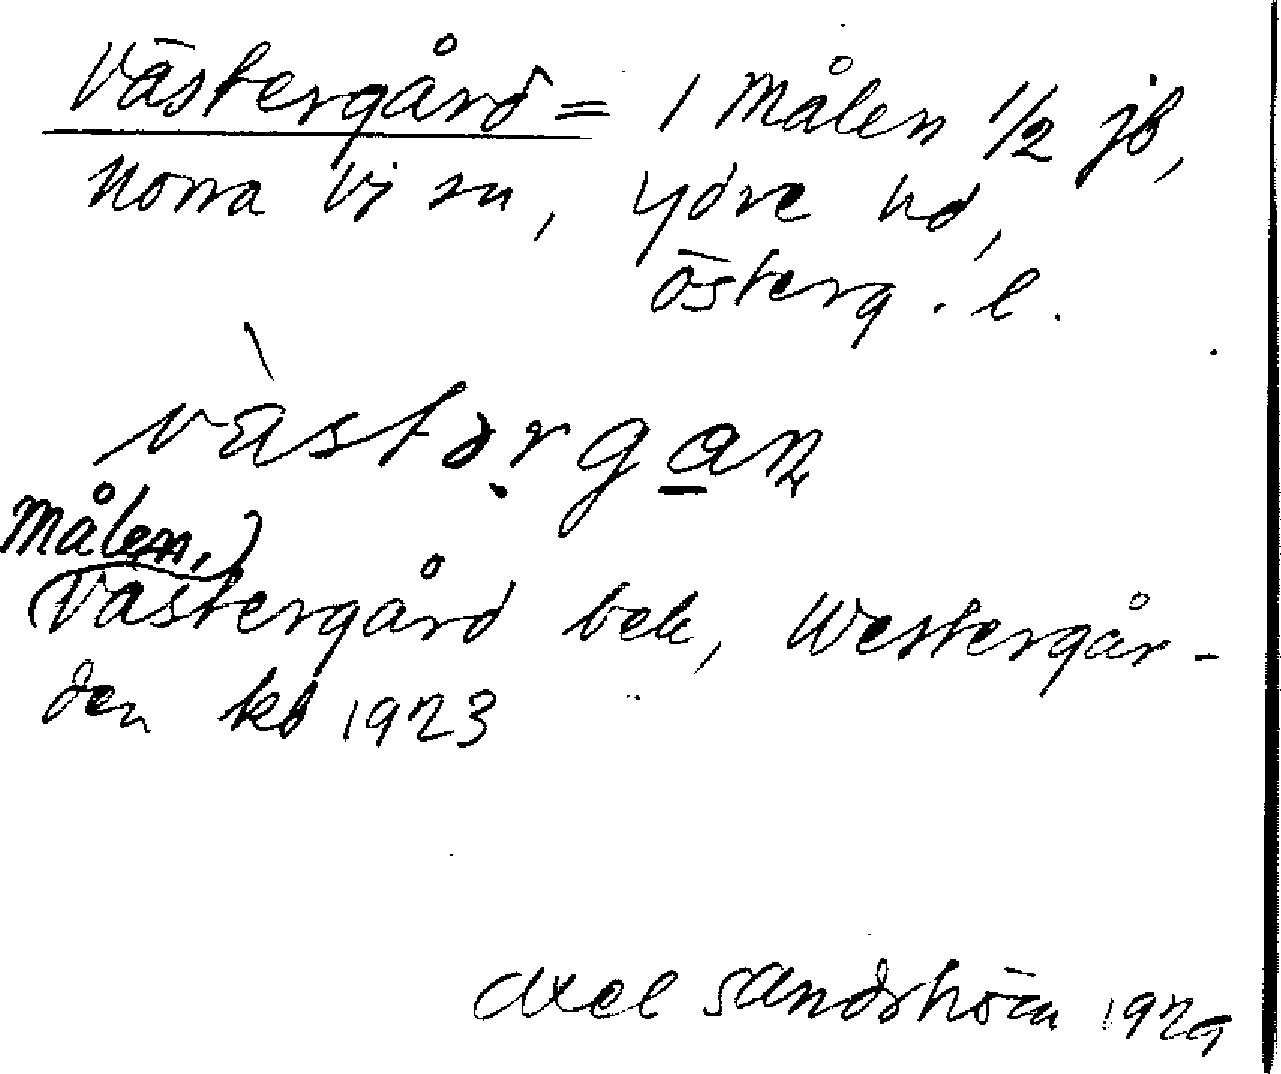 Västergård = 1 Målen 1/2 jb,
Norra Vi sn, Ydre hd,
Österg. l.
västərgan
Målen,
Västergård bek, Westergår-
den kb 1923
Axel Sandström 1929